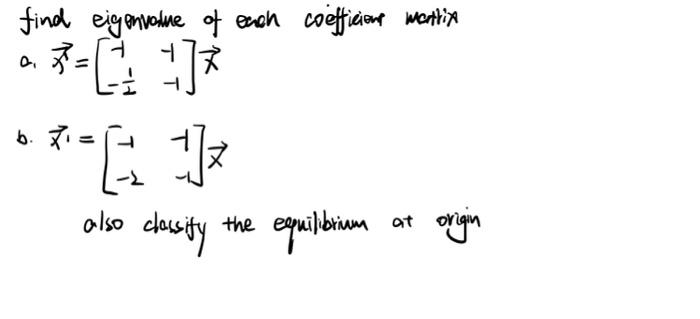 find eigenvalue of each coefficient matrix
a. x⃗' = [-1 -1; -1/2 -1] x⃗
b. x⃗' = [-1 -1; -2 -1] x⃗
also classify the equilibrium at origin